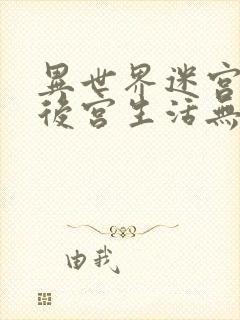 異世界迷宮
後宮生活無
由我